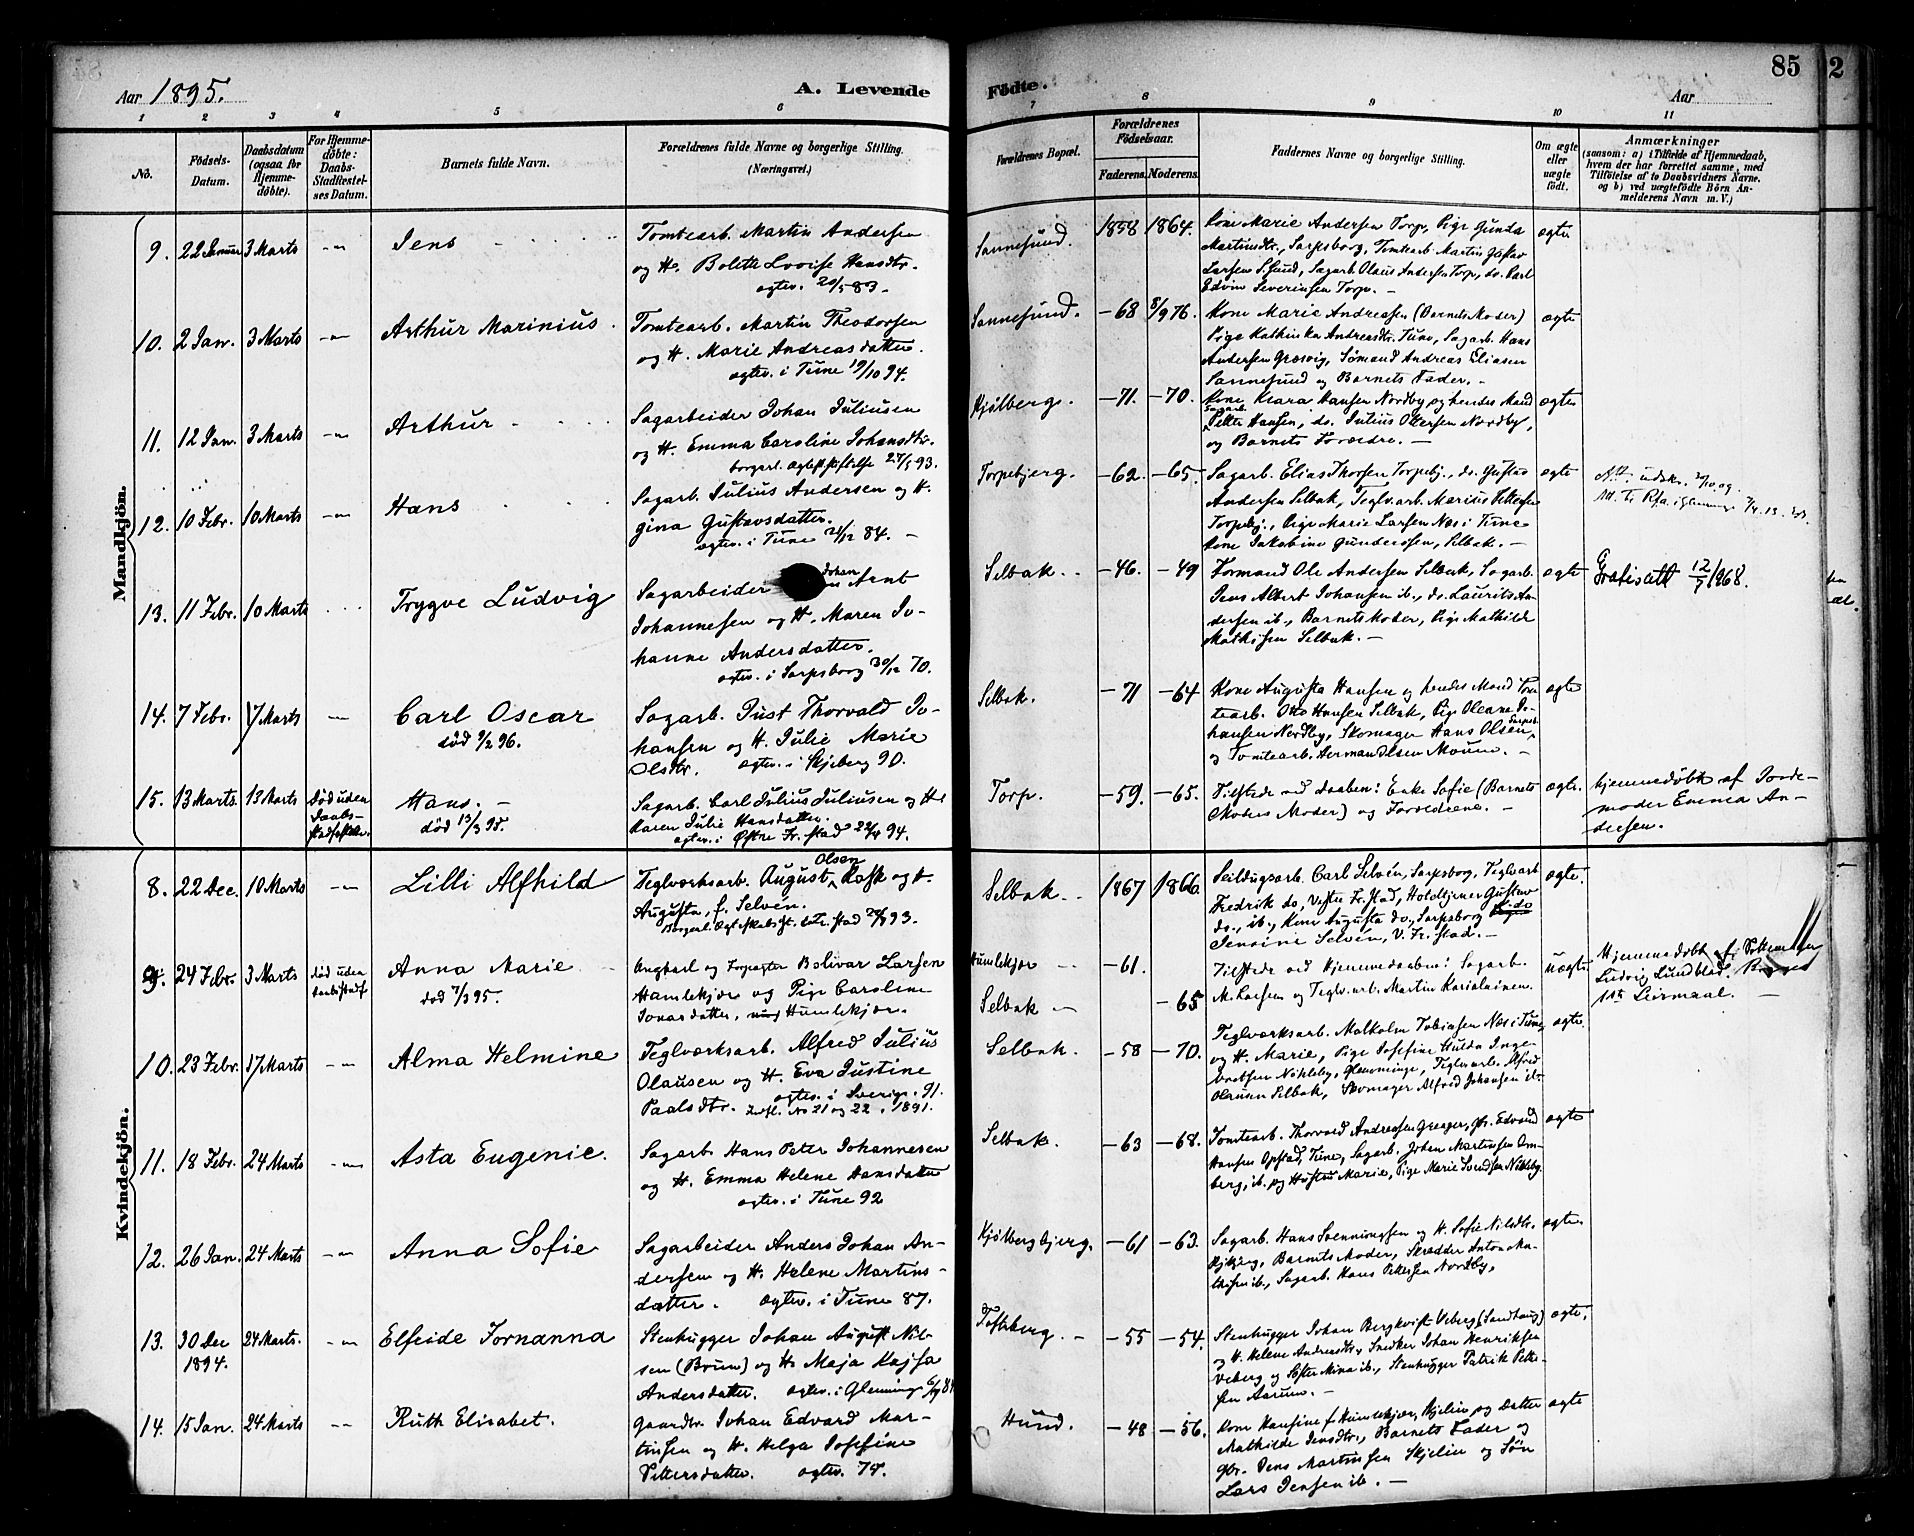 Aar 1895.
A. Levende
Födte.
85
2
Aar
1 2 3 4 5 6 7 8 9 10 11
No.
Födsels-
Datum.
Daabsdatum
(ogsaa for
Hjemme-
döbte).
For Hjemme-
döbte:
Daabs-
Stadfæstel-
ses Datum.
Barnets fulde Navn.
Forældrenes fulde Navne og borgerlige Stilling.
(Næringsvei.)
Forældrenes Bopæl.
Forældrenes
Födselsaar.
Faderens. Moderens.
Faddernes Navne og borgerlige Stilling.
Om ægte
eller
uægte
födt.
Anmærkninger
(saasom: a) i Tilfælde af Hjemmedaab,
hvem der har forrettet samme, med
Tilföielse af to Daabsvidners Navne.
og b) ved uægtefödte Börn An-
melderens Navn m. V.)
Mandkjön.
9. 22 Januar 3 Marts Jens
Tomtearb. Martin Andersen
og H. Bolette Lovise Hansdtr.
ægtev. 20/5 83.
Sannesund. 1858 1864.
Kone Marie Andersen Torp, Pige Gunda
Martinsdtr., Sarpsborg, Tomtearb. Martin Gustav
Larsen S.sund, Sagarb. Olaus Andersen Torp, do. Carl
Edvin Severinsen Torp.
ægte
10. 2 Jan. 3 Marts Arthur Marinius.
Tomtearb. Martin Theodorsen
og H. Marie Andreasdatter.
ægtev. i Tune 19/10 94.
Sannesund. -68 8/9 76.
Kone Marie Andreasen (Barnets Moder)
Pige Kathinka Andreasdtr. Tune, Sagarb. Hans
Andersen Græsvig, Sømand Andreas Eliasen
Sannesund og Barnets Fader.
ægte
11. 12 Jan. 3 Marts Arthur
Sagarbeider Johan Juliusen
og H. Emma Caroline Johansdtr.
borgerl. Ægteskstiftelse 27/5 93.
Kjølberg. -71. -70.
Kone Klara Hansen Nordby og hendes Mand
Sagarb. Petter Hansen, do. Julius Ottersen Nordby,
og Barnets Forældre.
ægte
12. 10 Febr. 10 Marts Hans
Sagarb. Julius Andersen og H.
Gina Gustavsdatter.
ægtev. i Tune 21/12 84.
Torpebjerg. -62. -65.
Sagarb. Elias Thorsen Torpebj., do. Gustav
Andersen Selbak, Teglv.arb. Marius Pettersen
Torpebj., Pige Marie Larsen Næs i Tune
Kone Jakobine Gundersen, Selbak.
ægte
13. 11 Febr. 10 Marts Trygve Ludvig
Sagarbeider Johan Arnt
Johannesen og H. Maren Jo-
hanne Andersdatter.
ægtev. i Sarpsborg 30/12 70.
Selbak. -46. -49
Formand Ole Andersen Selbak, Sagarb.
Jens Albert Johansen ib., do. Laurits An-
dersen ib., Barnets Moder, Pige Mathilde
Mathisen Selbak.
ægte
Gratisatt 12/7 1968.
14. 7 Febr. 17 Marts Carl Oscar
død 9/2 96.
Sagarb. Just Thorvald Jo-
hansen og H. Julie Marie
Olsdtr. ægtev. i Skjeberg 90.
Selbak. -71 -64
Kone Augusta Hansen og hendes Mand Tom-
tearb. Otto Hansen Selbak, Pige Oleane Jo-
hansen Nordby, Skomager Hans Olsen,
og Tomtearb. Herman Olsen Moum.
ægte
15. 13 Marts. 13 Marts Død uden Daabs-
Hans.
død 13/3 95.
Sagarb. Carl Julius Juliusen og H.
Karen Julie Hansdatter.
ægtev. i Østre Fr.stad 94.
Torp. -59. -65.
Tilstede ved Daaben: Enke Sofie (Barnets
Moders Moder) og Forældrene.
ægte.
Hjemmedøbt af Jorde-
moder Emma An-
dersen.
Kvindekjön.
8. 22 Dec. 10 Marts Lilli Alfhild
Teglværksarb. August Olsen Kask og H.
Augusta, f. Selvén.
Selbak 1867 1866.
Seildugsarb. Carl Selvén, Sarpsborg, Teglvarb.
Fredrik do, Vestre Fr.stad, Gustav
do., ib., Kone Augusta do., Sarpsborg
Jensine Selvén, V. Fr.stad.
ægte.
9. 24 Febr. 3 Marts død uden
Anna Marie
død 7/3 95.
Ungkarl og Bolivar Larsen
Humlekjær og Pige Caroline
Jonasdatter, Humlekjær.
Humlekjær -61.
Selbak -65
Tilstede ved Hjemmedaaben: Sagarb.
M. Larsen og Teglv.arb. Martin Karialainen.
uægte.
Hjemmedøbt af
Ludvig Lundblad.
1ste Leirmaal.
10. 23 Febr. 17 Marts Alma Helmine
Teglværksarb. Alfred Julius
Olausen og H. Eva Justine
Paalsdtr. ægtev. i Sverige 91.
No 21 og 22, 1891.
Selbak. -58 -70.
Teglværksarb. Malkolm Tobiasen Næs i Tune,
og H. Marie, Pige Josefine Hulda Inge-
bretsen Nøkleby, Glemminge, Teglv.arb. Alfred
Olausen Selbak, Skomager Alfred Johansen ib.
ægte.
11. 18 Febr. 24 Marts Asta Eugenie
Sagarb. Hans Peter Johannesen
og H. Emma Helene Hansdatter
ægtev. i Tune 92
Selbak. -63 -68.
Tomtearb. Thorvald Andreassen Greager, Gbr. Edvard
Hansen Opstad, Tune, Sagarb. Johan Martinsen Om-
berg, ib. og Hustru Marie, Pige Marie Svendsen Nøkleby.
ægte
12. 26 Jan. 24 Marts Anna Sofie
Sagarbeider Anders Johan An-
dersen og H. Helene Martins-
datter. ægtev. i Tune 87.
Kjølbergbjerg. -61 -63.
Sagarb. Hans Svenningsen og H. Sofie Nilsdtr.
Kjbjerg, Barnets Moder, Skrædder Anton Ma-
thisen ib., Sagarb. Hans Pettersen Nordby.
ægte
13. 30 Dec 1894. 24 Marts. Elfride Jornanna
Stenhugger Johan August Nil-
sen (Brun) og H. Maja Kajsa
Andersdatter. ægtev. i Glemminge
Tofteberg. -55 -54.
Stenhugger Johan Bergkvist Veberg (Sandhaug)
og H. Helene Andreasdtr., Snedker Johan Henriksen
Veberg og Søster Mina ib., Stenhugger Patrik Pette-
sen Aarum.
ægte,
14. 15 Jan. 24 Marts Ruth Elisabet.
Gaardbr. Johan Edvard Mar-
tinsen og H. Helga Josefine
Pettersdatter. ægtev. 74.
Hund. -48 -56.
Kone Hansine f. Humlekjær, Skjelin og Datter
Mathilde Jensdtr., Barnets Fader og
Gbr. Jens Martinsen Skjelin og Søn
Lars Jensen ib.
ægte